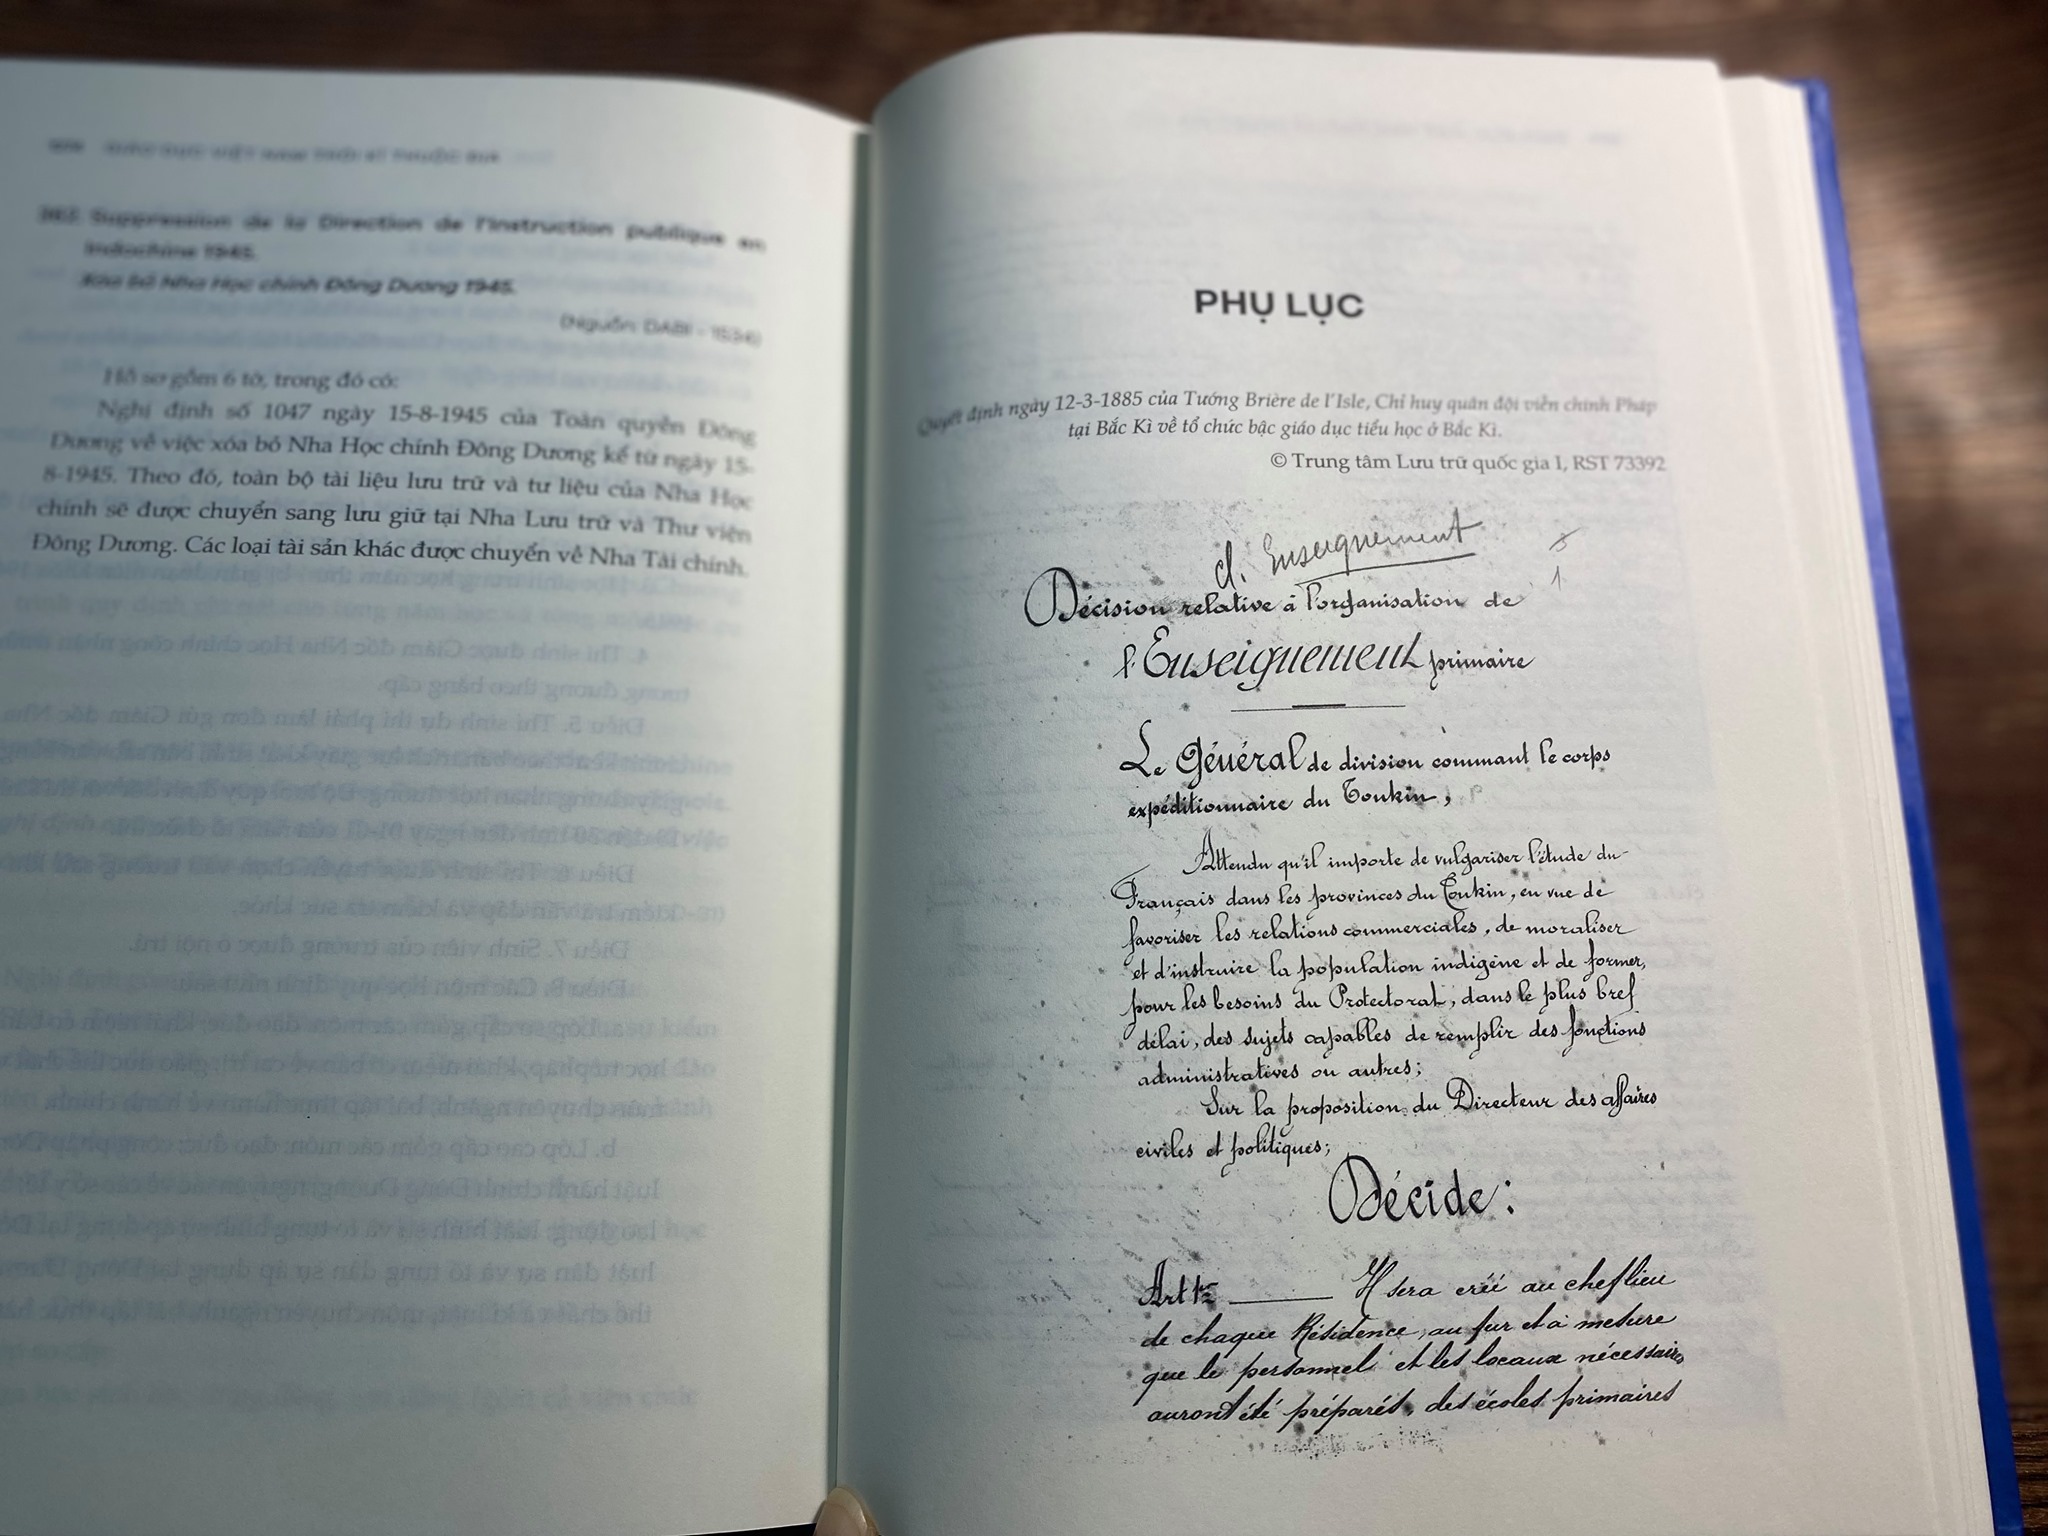 GIÁO DỤC VIỆT NAM THỜI KÌ THUỘC ĐỊA
Suppression de la Direction de l'Instruction publique en
Indochine 1945.
Xóa bỏ Nha Học chính Đông Dương 1945.
(Nguồn: DABI - 1534)
Hồ sơ gồm 6 tờ, trong đó có:
Nghị định số 1047 ngày 15-8-1945 của Toàn quyền Đông
Dương về việc xóa bỏ Nha Học chính Đông Dương kể từ ngày 15-
8-1945. Theo đó, toàn bộ tài liệu lưu trữ và tư liệu của Nha Học
chính sẽ được chuyển sang lưu giữ tại Nha Lưu trữ và Thư viện
Đông Dương. Các loại tài sản khác được chuyển về Nha Tài chính.
PHỤ LỤC
Quyết định ngày 12-3-1885 của Tướng Brière de l'Isle, Chỉ huy quân đội viễn chinh Pháp
tại Bắc Kì về tổ chức bậc giáo dục tiểu học ở Bắc Kì.
© Trung tâm Lưu trữ quốc gia I, RST 73392
d. Enseignement
Décision relative à l'organisation de
l'Enseignement primaire
Le Général de division commant le corps
expéditionnaire du Tonkin,
Attendu qu'il importe de vulgariser l'étude du
Français dans les provinces du Tonkin, en vue de
favoriser les relations commerciales, de moraliser
et d'instruire la population indigène et de former,
pour les besoins du Protectorat, dans le plus bref
délai, des sujets capables de remplir des fonctions
administratives ou autres;
Sur la proposition du Directeur des affaires
civiles et politiques;
Décide:
Art 1er Il sera créé au chef lieu
de chaque Résidence, au fur et à mesure
que le personnel et les locaux nécessaires
auront été préparés, des écoles primaires